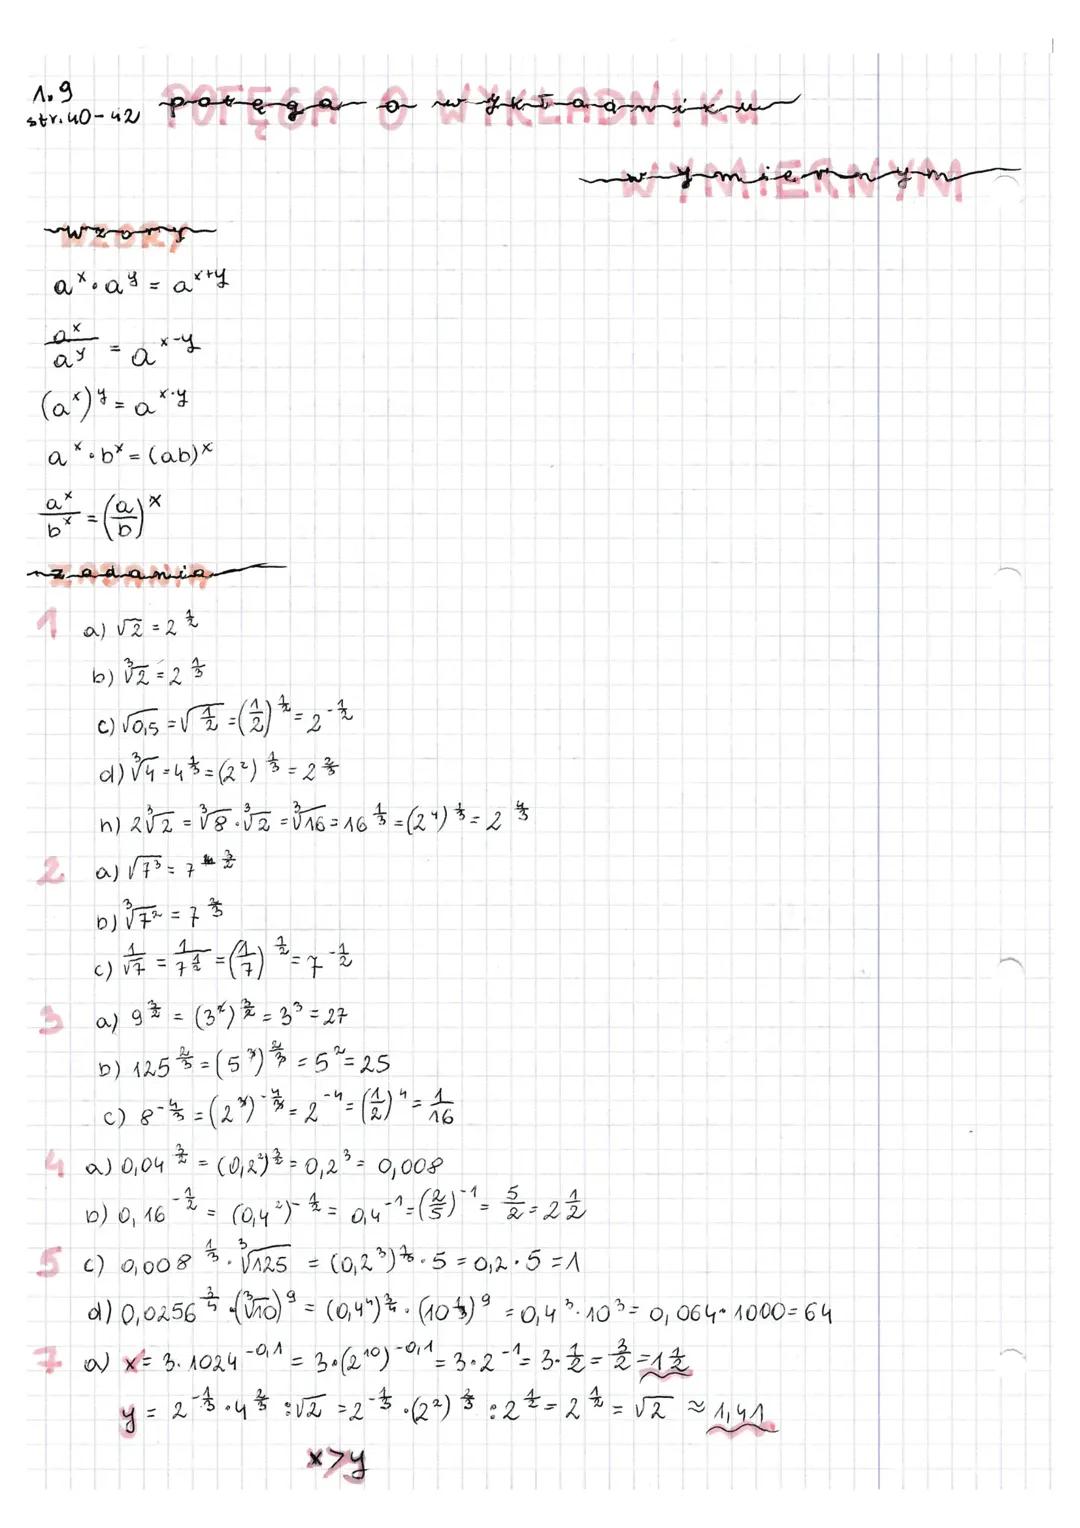 1.9
str. 40-42
potęga o wykładniku
wymiernym
wzory
a^x · a^y = a^(x+y)
a^x / a^y = a^(x-y)
(a^x)^y = a^(x·y)
a^x · b^x = (ab)^x
a^x / b^x = (a/b)^x
zadania
1 a) √2 = 2^(1/2)
b) ∛2 = 2^(1/3)
c) √0,5 = √(1/2) = (1/2)^(1/2) = 2^(-1/2)
d) ∛4 = 4^(1/3) = (2²)^(1/3) = 2^(2/3)
h) 2∛2 = ∛8 · ∛2 = ∛16 = 16^(1/3) = (2⁴)^(1/3) = 2^(4/3)
2 a) √7³ = 7^(3/2)
b) ∛7² = 7^(2/3)
c) 1/√7 = 1/7^(1/2) = (1/7)^(1/2) = 7^(-1/2)
3 a) 9^(3/2) = (3²)^(3/2) = 3³ = 27
b) 125^(2/3) = (5³)^(2/3) = 5² = 25
c) 8^(-4/3) = (2³)^(-4/3) = 2^(-4) = (1/2)⁴ = 1/16
4 a) 0,04^(3/2) = (0,2²)^(3/2) = 0,2³ = 0,008
b) 0,16^(-1/2) = (0,4²)^(-1/2) = 0,4^(-1) = (2/5)^(-1) = 5/2 = 2 1/2
5 c) 0,008^(1/3) · ∛125 = (0,2³)^(1/3) · 5 = 0,2 · 5 = 1
d) 0,0256^(3/4) · (∛10)⁹ = (0,4⁴)^(3/4) · (10^(1/3))⁹ = 0,4³ · 10³ = 0,064 · 1000 = 64
7 a) x = 3 · 1024^(-0,1) = 3 · (2^10)^(-0,1) = 3 · 2^(-1) = 3 · 1/2 = 3/2 = 1 1/2
y = 2^(-1/3) · 4^(2/3) : √2 = 2^(-1/3) · (2²)^(2/3) : 2^(1/2) = 2^(1/2) = √2 ≈ 1,41
x > y